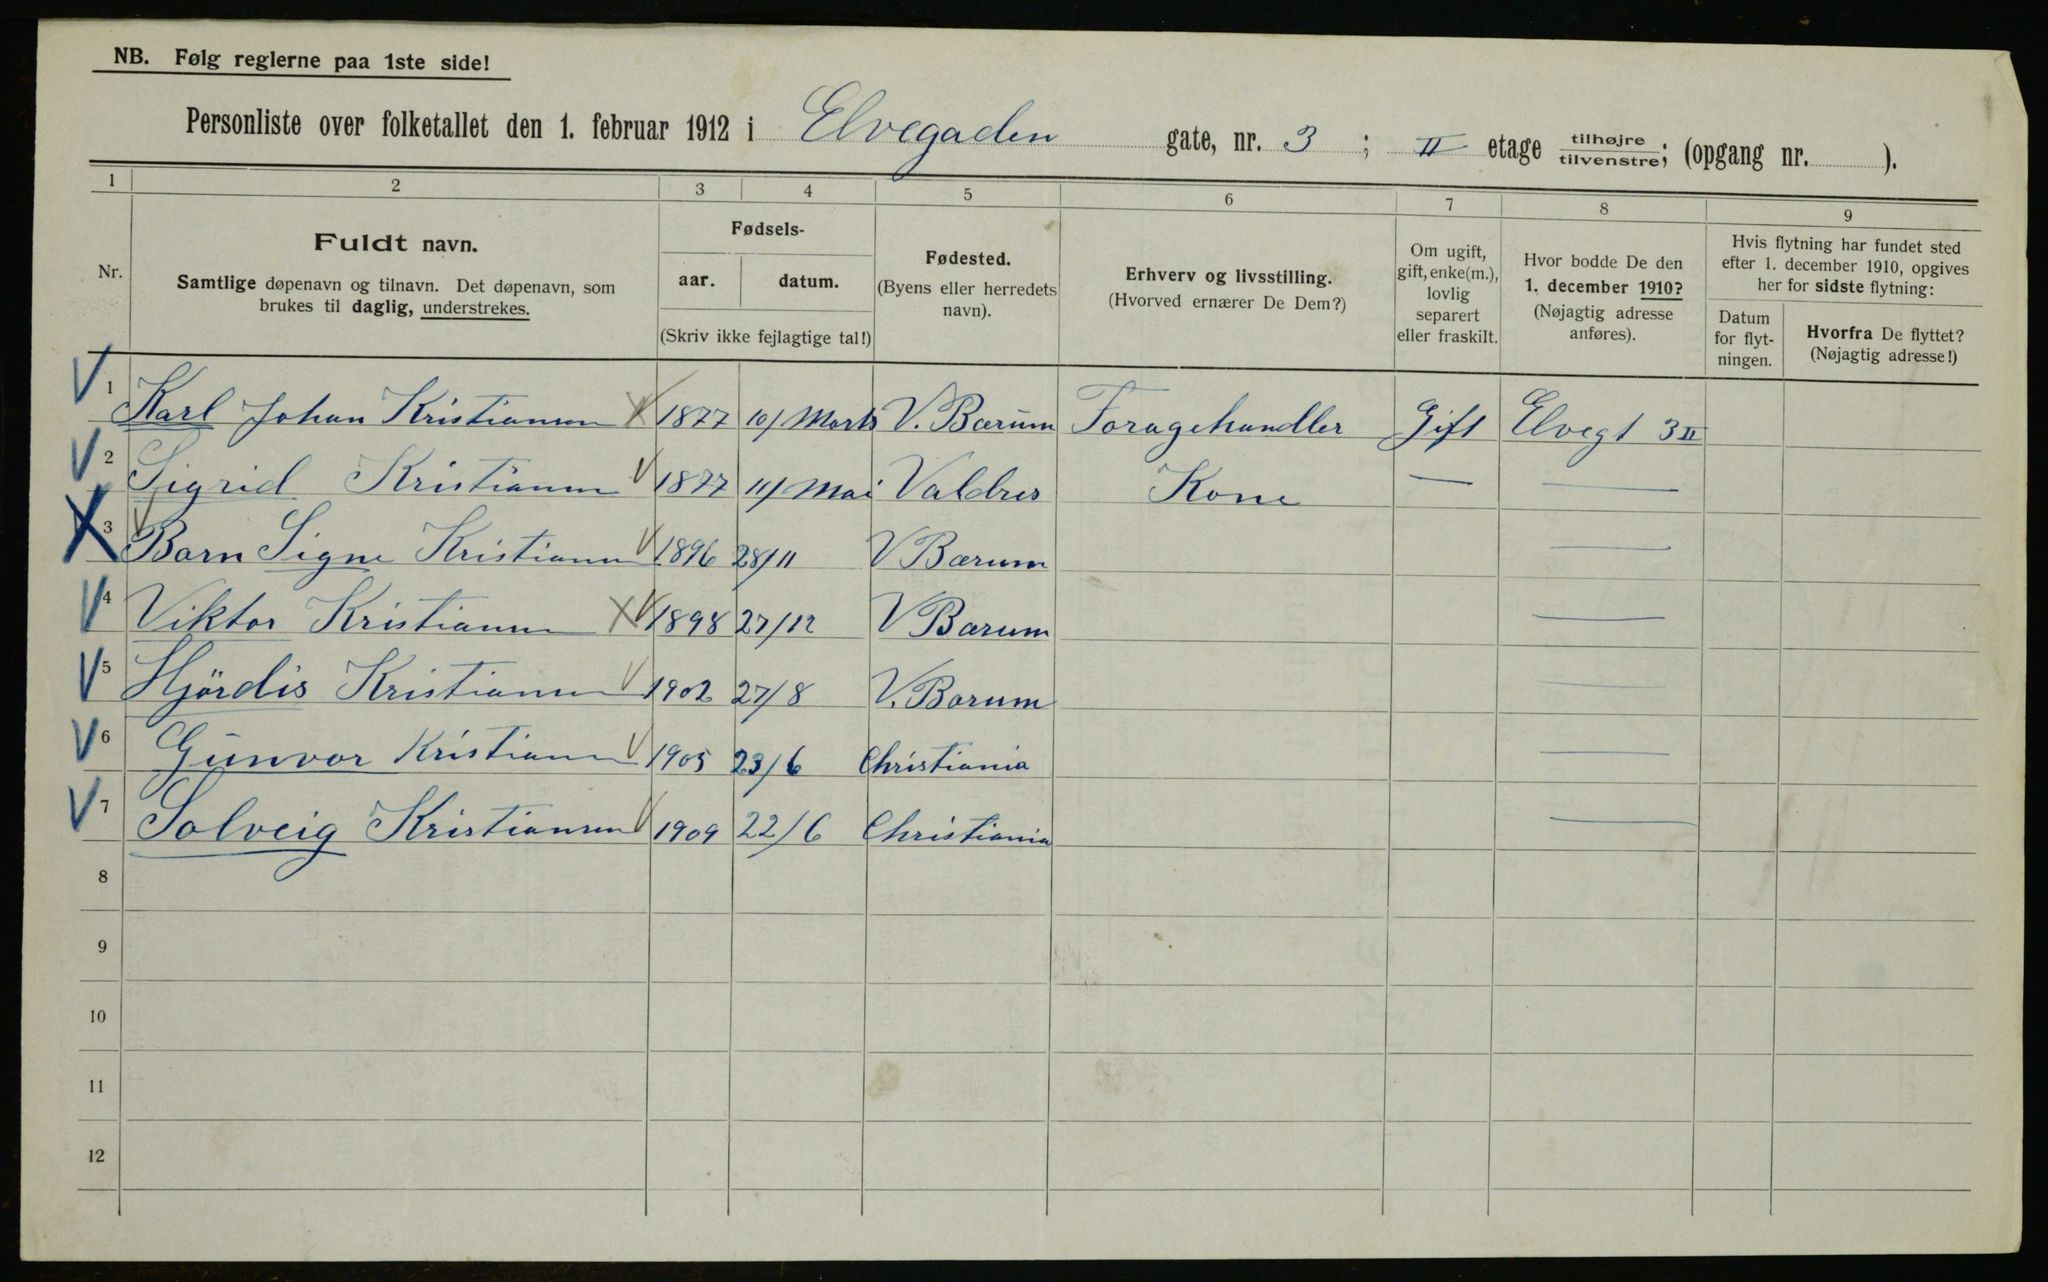 NB. Følg reglerne paa 1ste side!
Personliste over folketallet den 1. februar 1912 i Elvegaden gate, nr. 3 ; II etage tilhøjre/tilvenstre; (opgang nr. ).
1 2 3 4 5 6 7 8 9
Nr.
Fuldt navn.
Samtlige døpenavn og tilnavn. Det døpenavn, som
brukes til daglig, understrekes.
Fødsels-
aar. datum.
(Skriv ikke fejlagtige tal!)
Fødested.
(Byens eller herredets
navn).
Erhverv og livsstilling.
(Hvorved ernærer De Dem?)
Om ugift,
gift, enke(m.),
lovlig
separert
eller fraskilt.
Hvor bodde De den
1. december 1910?
(Nøjagtig adresse
anføres).
Hvis flytning har fundet sted
efter 1. december 1910, opgives
her for sidste flytning:
Datum
for flyt-
ningen.
Hvorfra De flyttet?
(Nøjagtig adresse!)
1 Karl Johan Kristiansen 1877 10/ Marts V. Bærum Foragehandler Gift Elvegt 3 II
2 Sigrid Kristiansen 1877 10/ Mai Valdres Kone — —
3 Barn Signe Kristiansen 1896 28/11 V Bærum —
4 Viktor Kristiansen 1898 27/12 V Bærum —
5 Hjördis Kristiansen 1902 27/8 V. Barum —
6 Gunvor Kristiansen 1905 23/6 Christiania —
7 Solveig Kristiansen 1909 22/6 Christiania —
8
9
10
11
12